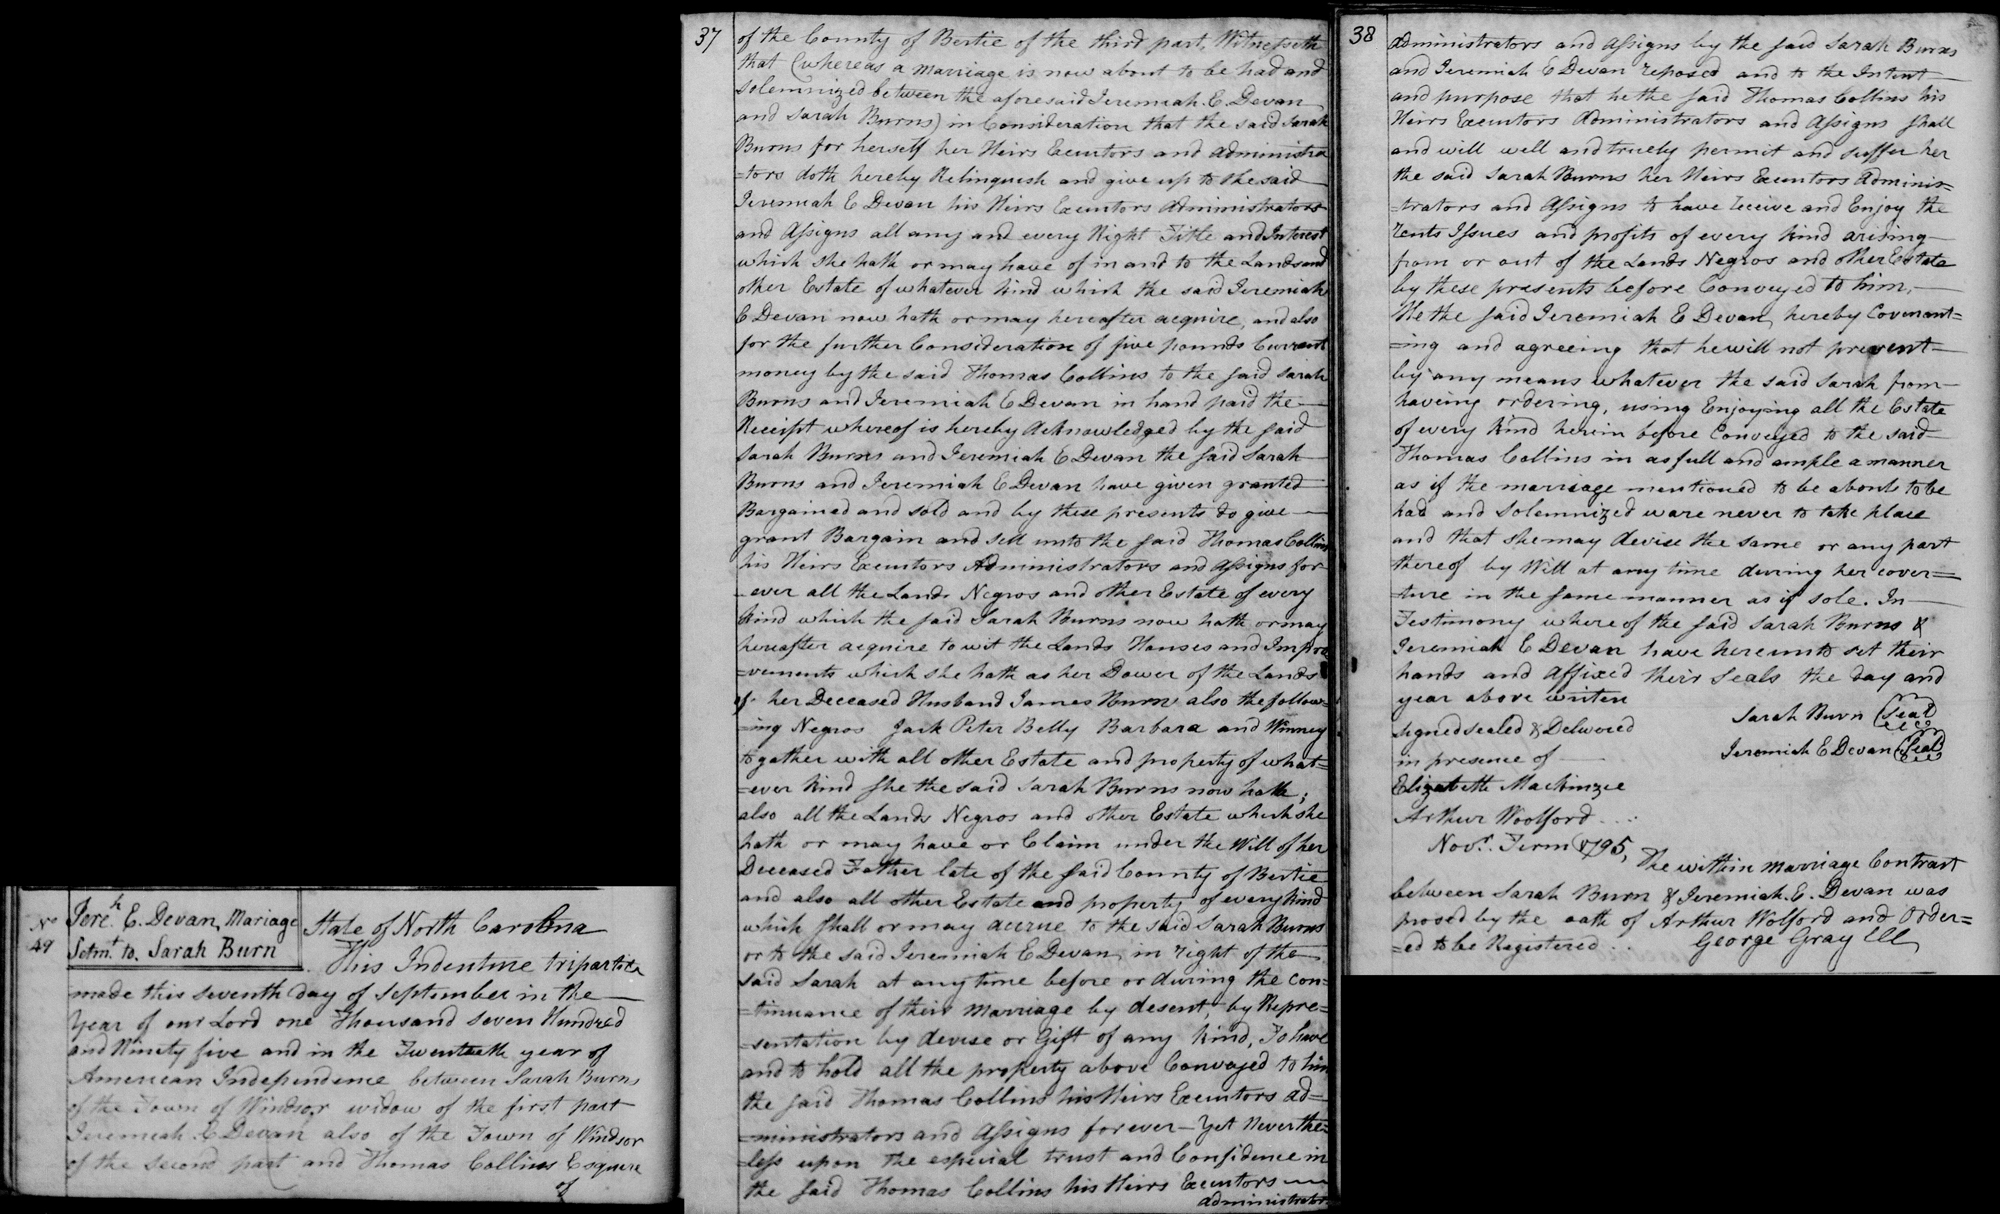 No
49
Jereh. E. Devan, Mariage
Setmt. to. Sarah Burn
State of North Carolina
This Indenture tripartite
made this seventh day of September in the
Year of our Lord one Thousand Seven Hundred
and Ninety five and in the Twentieth year of
American Independence between Sarah Burns
of the Town of Windsor widow of the first part
Jeremiah E Devan also of the Town of Windsor
of the Second part and Thomas Collins Esquire
of
37
of the County of Bertie of the third part, Witnesseth
that (whereas a marriage is now about to be had and
Solemnized between the aforesaid Jeremiah. E. Devan
and Sarah Burns) in Consideration that the said Sarah
Burns for herself her Heirs Executors and administra
=tors doth hereby Relinquish and give up to the said
Jeremiah E Devan his Heirs Executors Administrators
and Assigns all any and every Right Title and Interest
which she hath or may have of in and to the Lands and
other Estate of whatever kind which the said Jeremiah
E Devan now hath or may hereafter acquire, and also
for the further Consideration of five pounds Current
money by the said Thomas Collins to the said Sarah
Burns and Jeremiah E Devan in hand paid the
Receipt whereof is hereby Acknowledged by the said
Sarah Burns and Jeremiah E Devan the said Sarah
Burns and Jeremiah E Devan have given granted
Bargained and sold and by these presents do give
grant Bargain and sell unto the said Thomas Collins
his Heirs Executors Administrators and Assigns for
=ever all the Lands Negros and other Estate of every
kind which the said Sarah Burns now hath or may
hereafter acquire to wit the Lands Houses and Impro
=vements which she hath as her Dower of the Lands
of her Deceased Husband James Burn also the follow=
=ing Negros Jack Peter Betty Barbara and Winney
together with all other Estate and property of what=
=ever kind she the said Sarah Burns now hath;
also all the Lands Negros and other Estate which she
hath or may have or Claim under the Will of her
Deceased Father late of the said County of Bertie
and also all other Estate and property of every kind
which shall or may accrue to the said Sarah Burns
or to the said Jeremiah E Devan, in right of the
said Sarah at any time before or during the con=
=tinuance of their marriage by desent, by Repre=
=sentation by devise or Gift of any kind, To have
and to hold all the property above Conveyed to him
the said Thomas Collins his Heirs Executors ad=
=ministrators and Assigns forever — Yet Never the=
=less upon the especial trust and Confidence in
the said Thomas Collins his Heirs Executors
administrators
38
Administrators and Assigns by the said Sarah Burns
and Jeremiah E Devan reposed and to the Intent
and purpose that he the said Thomas Collins his
Heirs Executors Administrators and Assigns shall
and will well and truely permit and suffer her
the said Sarah Burns her Heirs Executors Adminis=
=trators and Assigns to have receive and Enjoy the
rents Issues and profits of every kind arising
from or out of the Lands Negros and other Estate
by these presents before Conveyed to him,
He the said Jeremiah E Devan, hereby Covenant=
=ing and agreeing that he will not prevent
by any means whatever the said Sarah from
haveing ordering, using Enjoying all the Estate
of every kind herein before Conveyed to the said
Thomas Collins in as full and ample a manner
as if the marriage mentioned to be about to be
had and Solemnized ware never to take place
and that she may devise the same or any part
thereof by Will at any time during her cover=
=ture in the same manner as if sole. In
Testimony whereof the said Sarah Burns &
Jeremiah E Devan have hereunto set their
hands and Affixed their Seals the day and
year above writen
Signed sealed & Delivered
Sarah Burn (Seal)
in presence of
Jeremiah E Devan (Seal)
Elizabeth Mackinzee
Arthur Woolford
Novr. Term 1795,
The within marriage Contract
between Sarah Burn & Jeremiah. E. Devan was
proved by the oath of Arthur Wolford and Order=
=ed to be Registered
George Gray Clk